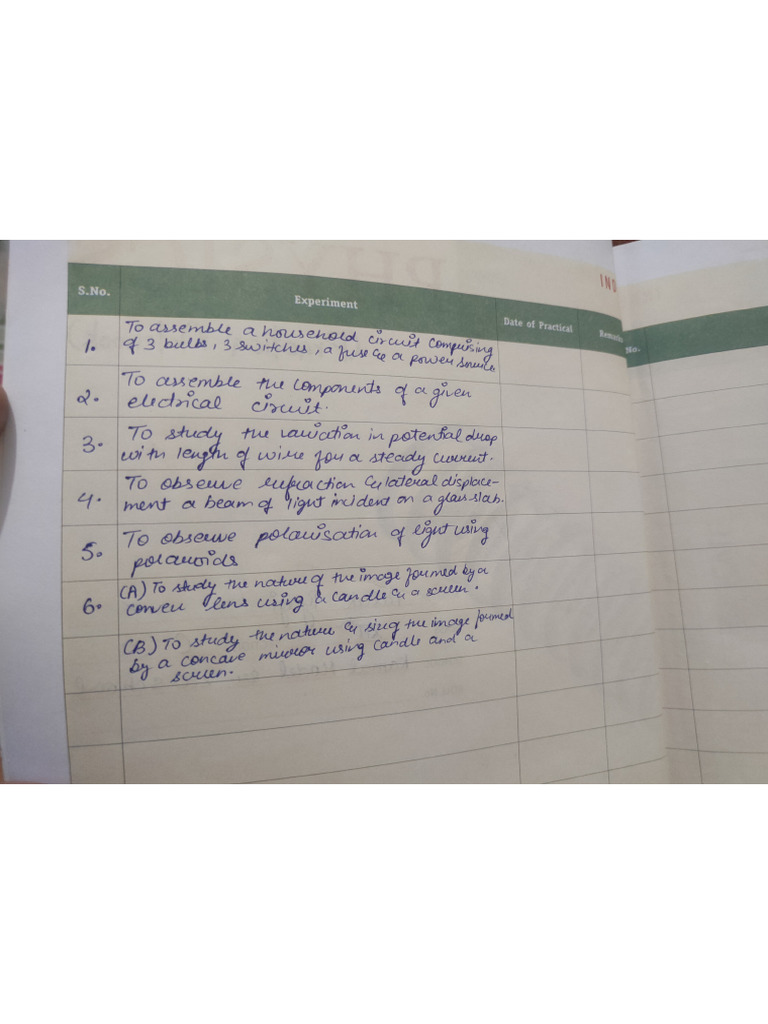 IND
S.No.
Experiment
Date of Practical
Remarks
No.
1. To assemble a household circuit comprising
of 3 bulbs, 3 switches, a fuse & a power source
2. To assemble the components of a given
electrical circuit.
3. To study the variation in potential drop
with length of wire for a steady current.
4. To observe refraction & lateral displace-
ment a beam of light incident on a glass slab.
5. To observe polarisation of light using
polaroids
6. (A) To study the nature of the image formed by a
convex lens using a candle & a screen.
(B) To study the nature & sizg the image formed
by a concave mirror using candle and a
screen.